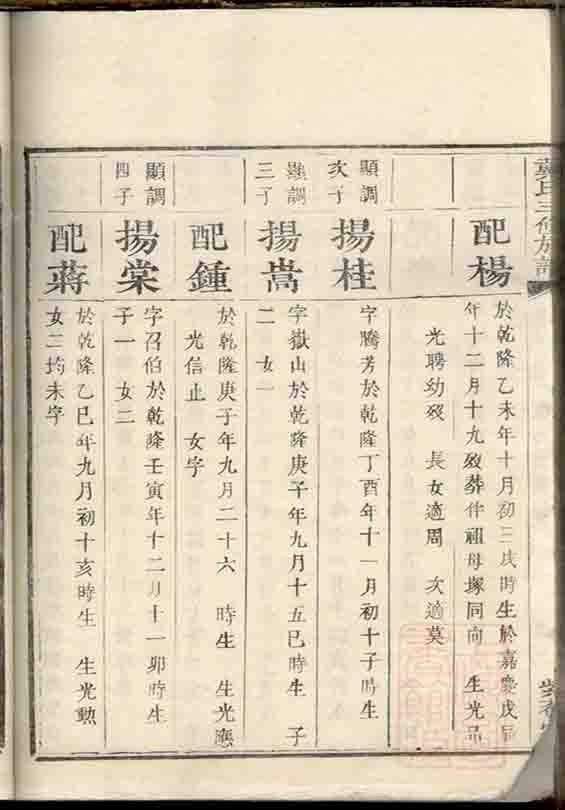 氏三修族譜
配楊
於乾隆乙未年十月初三戌時生於嘉慶戊辰
年十二月十九歿葬伴祖母塚同向 生光
光聘幼歿 長女適周 次適莫
顯調
次子
揚桂
字騰芳於乾隆丁酉年十一月初十子時生
顯調
三子
揚嵩
字嶽山於乾隆庚子年九月十五巳時生 子
二 女一
配鍾
於乾隆庚子年九月二十六 時生 生光應
光信止 女字
顯調
四子
揚棠
字召伯於乾隆壬寅年十二月十一卯時生
子一 女二
配蔣
於乾隆乙巳年九月初十亥時生 生光勲
女二均未字